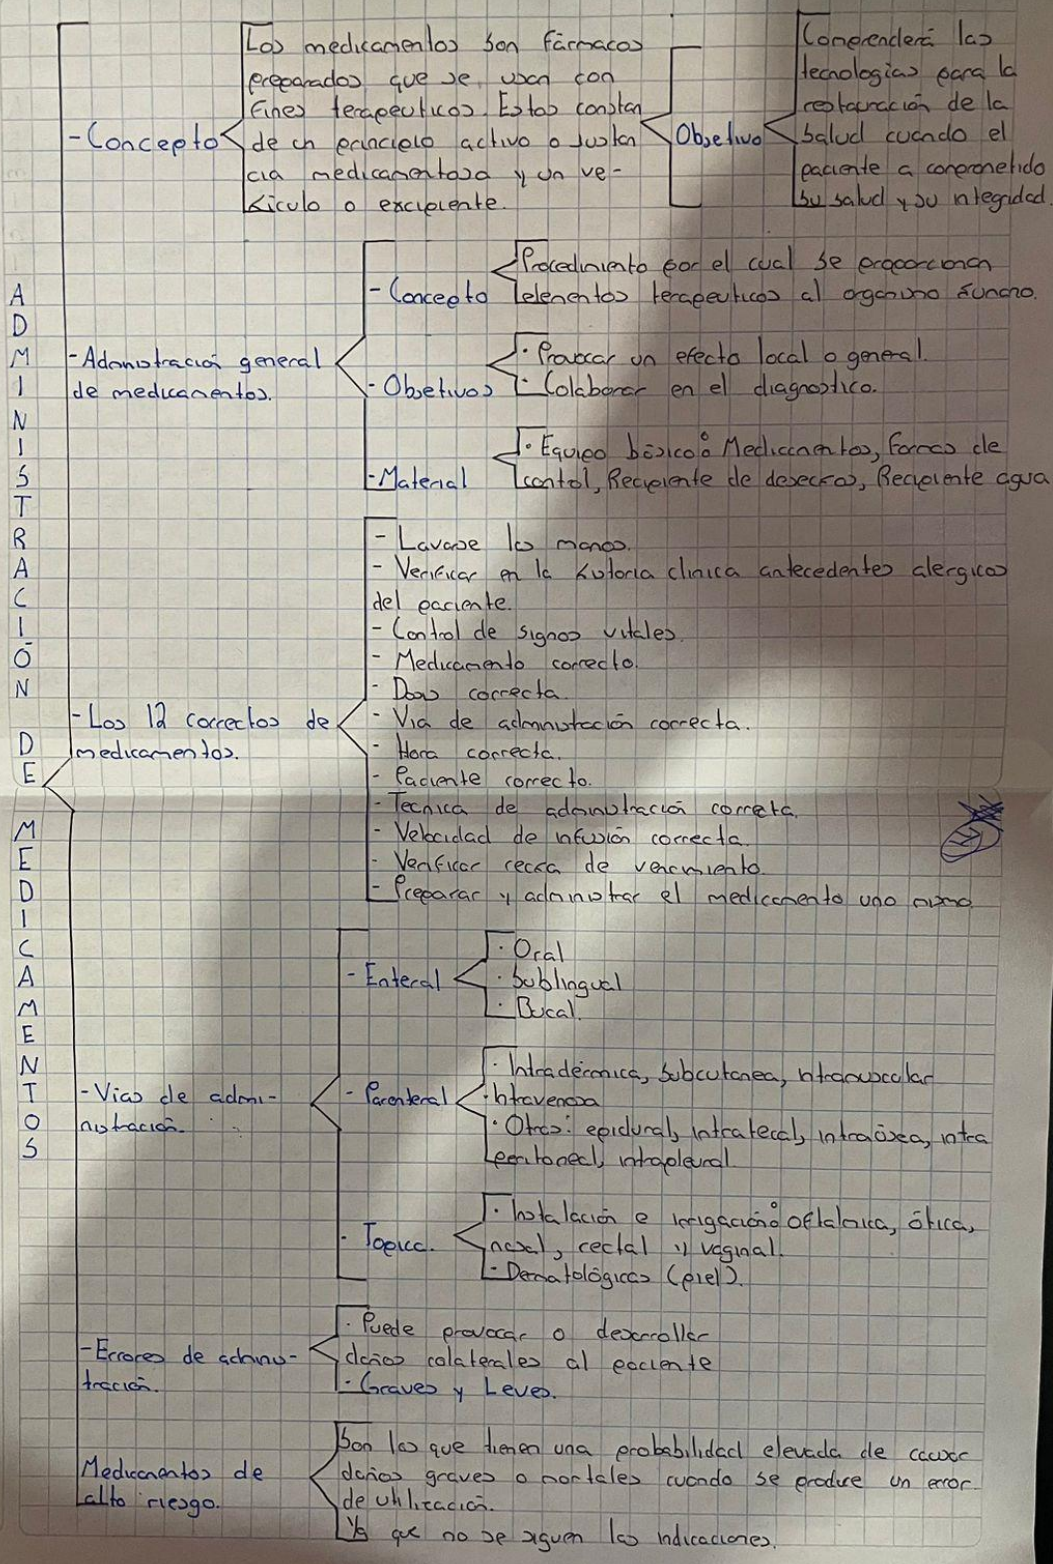 ADMINISTRACIÓN DE MEDICAMENTOS
- Concepto
Los medicamentos son fármacos
preparados que se usan con
fines terapeuticos. Estos constan
de un principio activo o sustan
cia medicamentosa y un ve-
hículo o excipiente.
Objetivo
Comprenderá las
tecnologías para la
restauración de la
salud cuando el
paciente a comprometido
su salud y su integridad.
- Administración general
de medicamentos.
- Concepto
Procedimiento por el cual se proporcionan
elementos terapeuticos al organismo humano.
- Objetivos
· Provocar un efecto local o general.
· Colaborar en el diagnostico.
- Material
· Equipo básico: Medicamentos, formas de
control, Recipiente de desechos, Recipiente agua
- Los 12 correctos de
medicamentos.
- Lavarse las manos.
- Verificar en la historia clinica antecedentes alergicos
del paciente.
- Control de signos vitales.
- Medicamento correcto.
- Dosis correcta.
- Via de administración correcta.
- Hora correcta.
- Paciente correcto.
- Tecnica de administración correta.
- Velocidad de infusión correcta.
- Verificar fecha de vencimiento.
- Preparar y administrar el medicamento uno mismo.
- Vias de admi-
nistración.
- Enteral
· Oral
· Sublingual
· Bucal.
- Parenteral
· Intradérmica, Subcutanea, intramuscular
· Intravenosa
· Otras: epidural, intratecal, intraósea, intra
peritoneal, intrapleural.
- Topica.
· Instalación e irrigación: oftalmica, ótica,
nasal, rectal y vaginal.
- Dermatológicas (piel).
- Errores de adminis-
tración.
· Puede provocar o desarrollar
daños colaterales al paciente
· Graves y Leves.
Medicamentos de
alto riesgo.
Son los que tienen una probabilidad elevada de causar
daños graves o mortales cuando se produce un error
de utilización.
Ya que no se siguen las indicaciones.